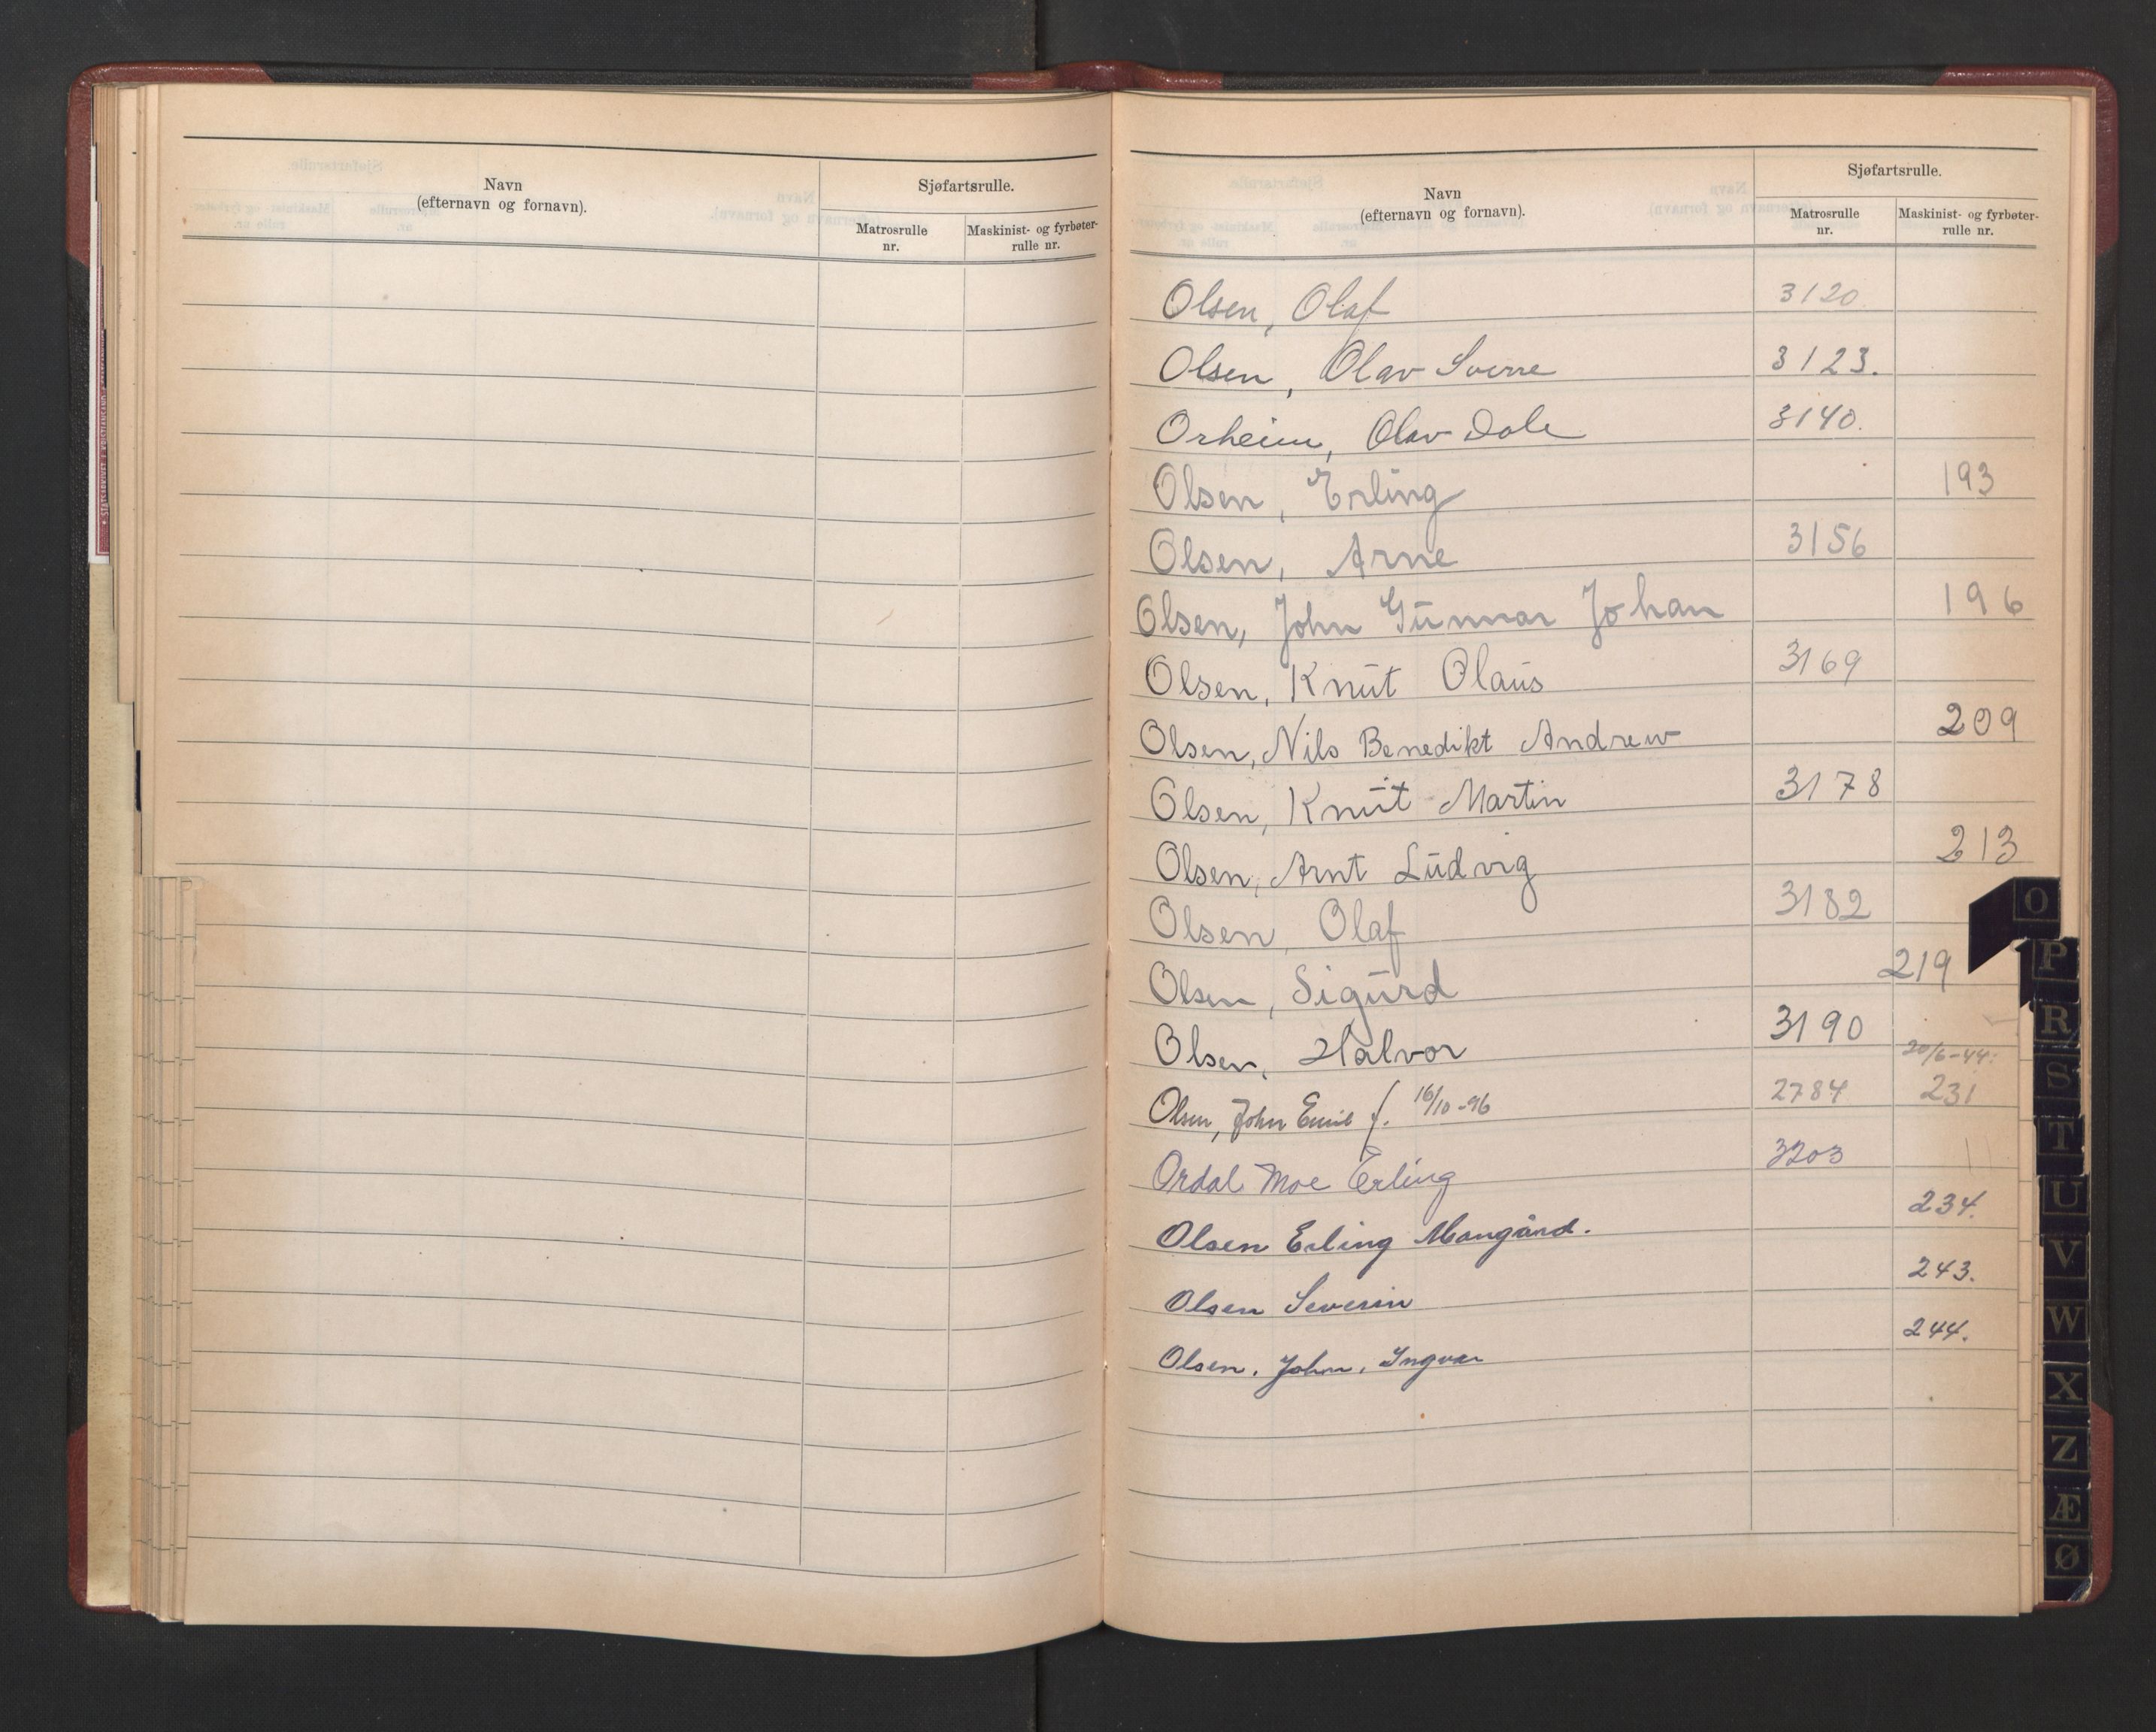 Navn
(efternavn og fornavn).
Sjøfartsrulle.
Matrosrulle
nr.
Maskinist- og fyrbøter-
rulle nr.
Navn
(efternavn og fornavn).
Sjøfartsrulle.
Matrosrulle
nr.
Maskinist- og fyrbøter-
rulle nr.
Olsen, Olaf 3120.
Olsen, Olav Sverre 3123.
Orheim, Olav Dale 3140.
Olsen, Erling 193
Olsen, Arne 3156
Olsen, John Gunnar Johan 196
Olsen, Knut Olaus 3169
Olsen, Nils Benedikt Andrew 209
Olsen, Knut Martin 3178
Olsen, Arnt Ludvig 213
Olsen, Olaf 3182
Olsen, Sigurd 219
Olsen, Halvor 3190
20/6-44:
Olsen, John Emil f. 16/10-96 2784 231
Ordal Moe Erling 3203
Olsen Erling Mangård. 234.
Olsen Severin 243.
Olsen, John, Ingvar 244.
O
P
R
S
T
U
V
W
X
Z
Æ
Ø